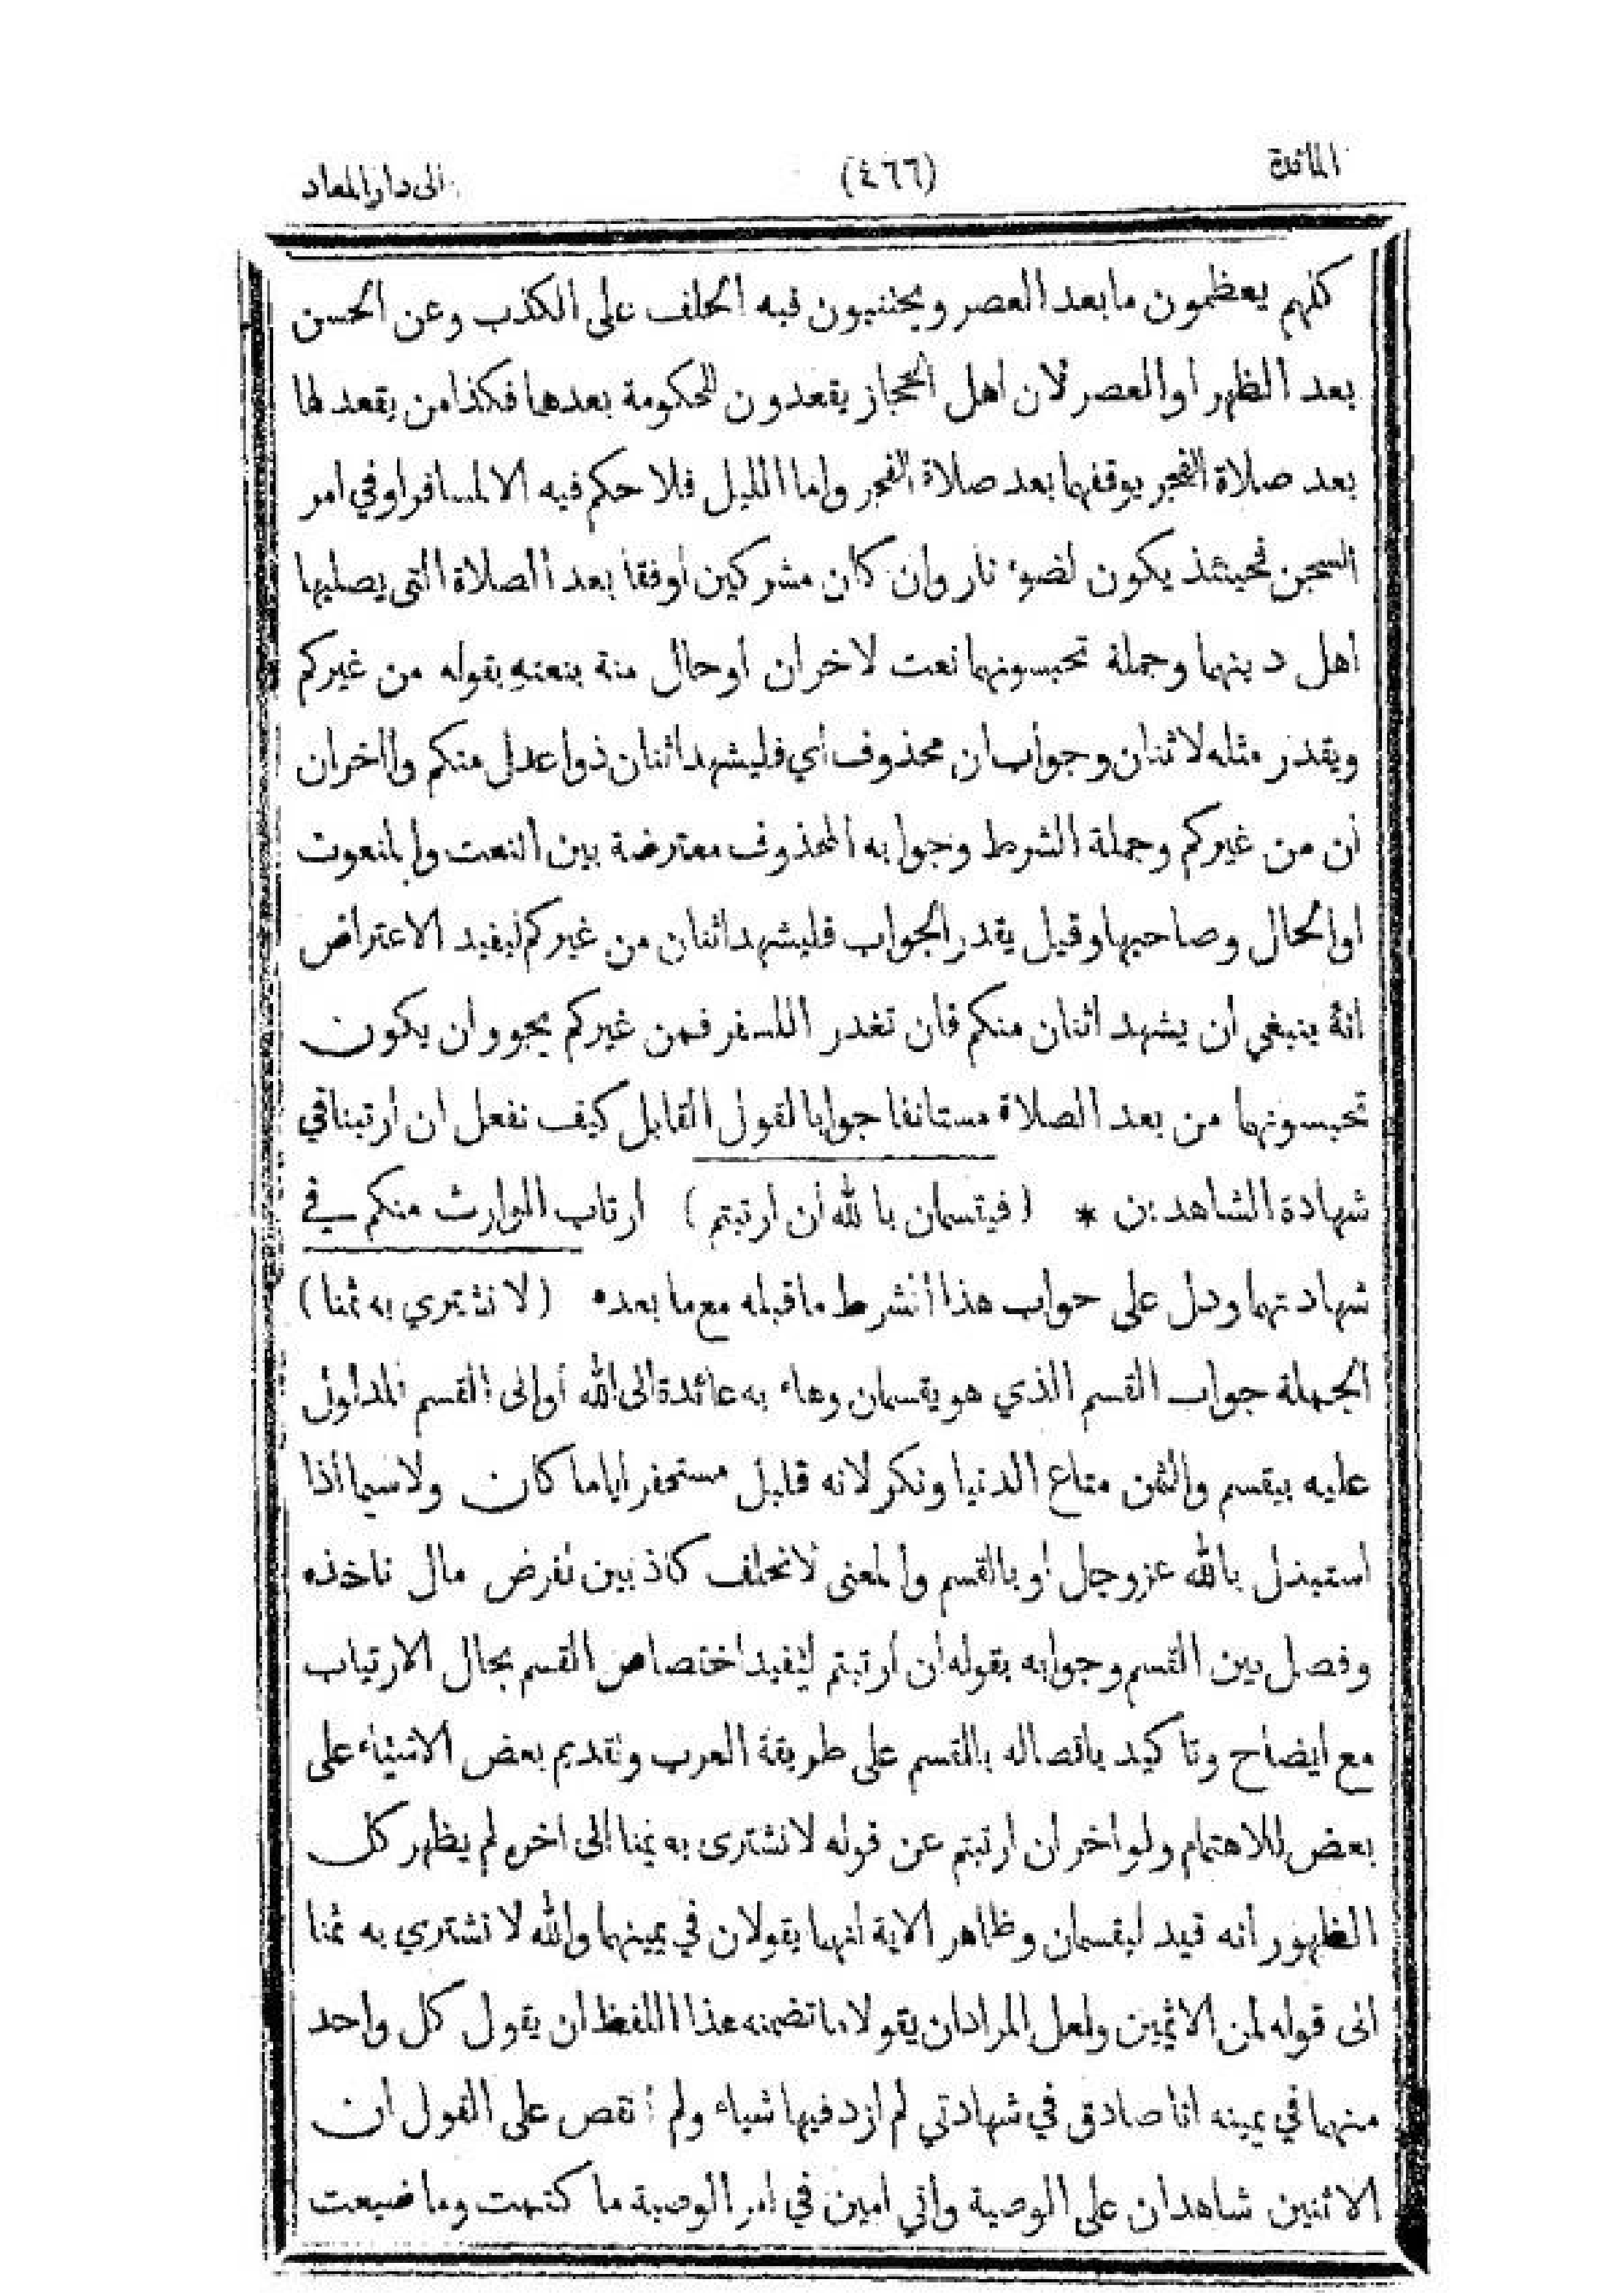 المائدة (٤٦٦) الى دار المعاد
كلهم يعظمون ما بعد العصر ويجتنبون فيه الحلف على الكذب وعن الحسن
بعد الظهر او العصر لان اهل الحجاز يقعدون للحكومة بعدهما فكذا من يقعد لها
بعد صلاة الفجر يوقفهما بعد صلاة الفجر واما الليل فلا حكم فيه الا لمسافر او في امر
السجن فحينئذ يكون لضوء نار وان كان مشركين اوفقا بعد الصلاة التي يصليها
اهل دينهما وجملة تحبسونهما نعت لاخران او حال منة بنعته بقوله من غيركم
ويقدر مثله لاثنان وجواب ان محذوف أي فليشهد اثنان ذوا عدل منكم واخران
ان من غيركم وجملة الشرط وجوابه المحذوف معترضة بين النعت والمنعوت
او الحال وصاحبها وقيل يقدر الجواب فليشهد اثنان من غيركم ليفيد الاعتراض
انه ينبغي ان يشهد اثنان منكم فان تغدر اللسفر فمن غيركم يجووان يكون
تحبسونهما من بعد الصلاة مستانفا جوابا لقول القايل كيف نفعل ان ارتبنا في
شهادة الشاهدين * (فيقسمان بالله أن ارتبتم) ارتاب الوارث منكم في
شهادتهما ودل على جواب هذا الشرط ما قبله مع ما بعده (لا نشتري به ثمنا)
الجملة جواب القسم الذي هو يقسمان وهاء به عائدة الى الله أو الى القسم المدلول
عليه بيقسم والثمن متاع الدنيا ونكر لانه قليل مستحقر اياما كان ولاسيما أذا
استبذل بالله عز وجل او بالقسم والمعنى لا نحلف كاذبين لفرض مال ناخذه
وفصل بين القسم وجوابه بقوله ان ارتبتم ليفيد اختصاص القسم بحال الارتياب
مع ايضاح وتاكيد باتصاله بالقسم على طريقة العرب وتقديم بعض الاشياء على
بعض للاهتمام ولو اخر ان ارتبتم عن قوله لا نشترى به ثمنا الى اخره لم يظهر كل
الظهور أنه قيد ليقسمان وظاهر الاية انهما يقولان في يمينهما والله لا نشتري به ثمنا
الى قوله لمن الاثمين ولعل المراد ان يقولا ما تضمنه هذا اللفظ ان يقول كل واحد
منهما في يمينه انا صادق في شهادتي لم ازد فيها شياء ولم انقص على القول ان
الاثنين شاهدان على الوصية واني امين في امر الوصية ما كتمت وما ضيعت